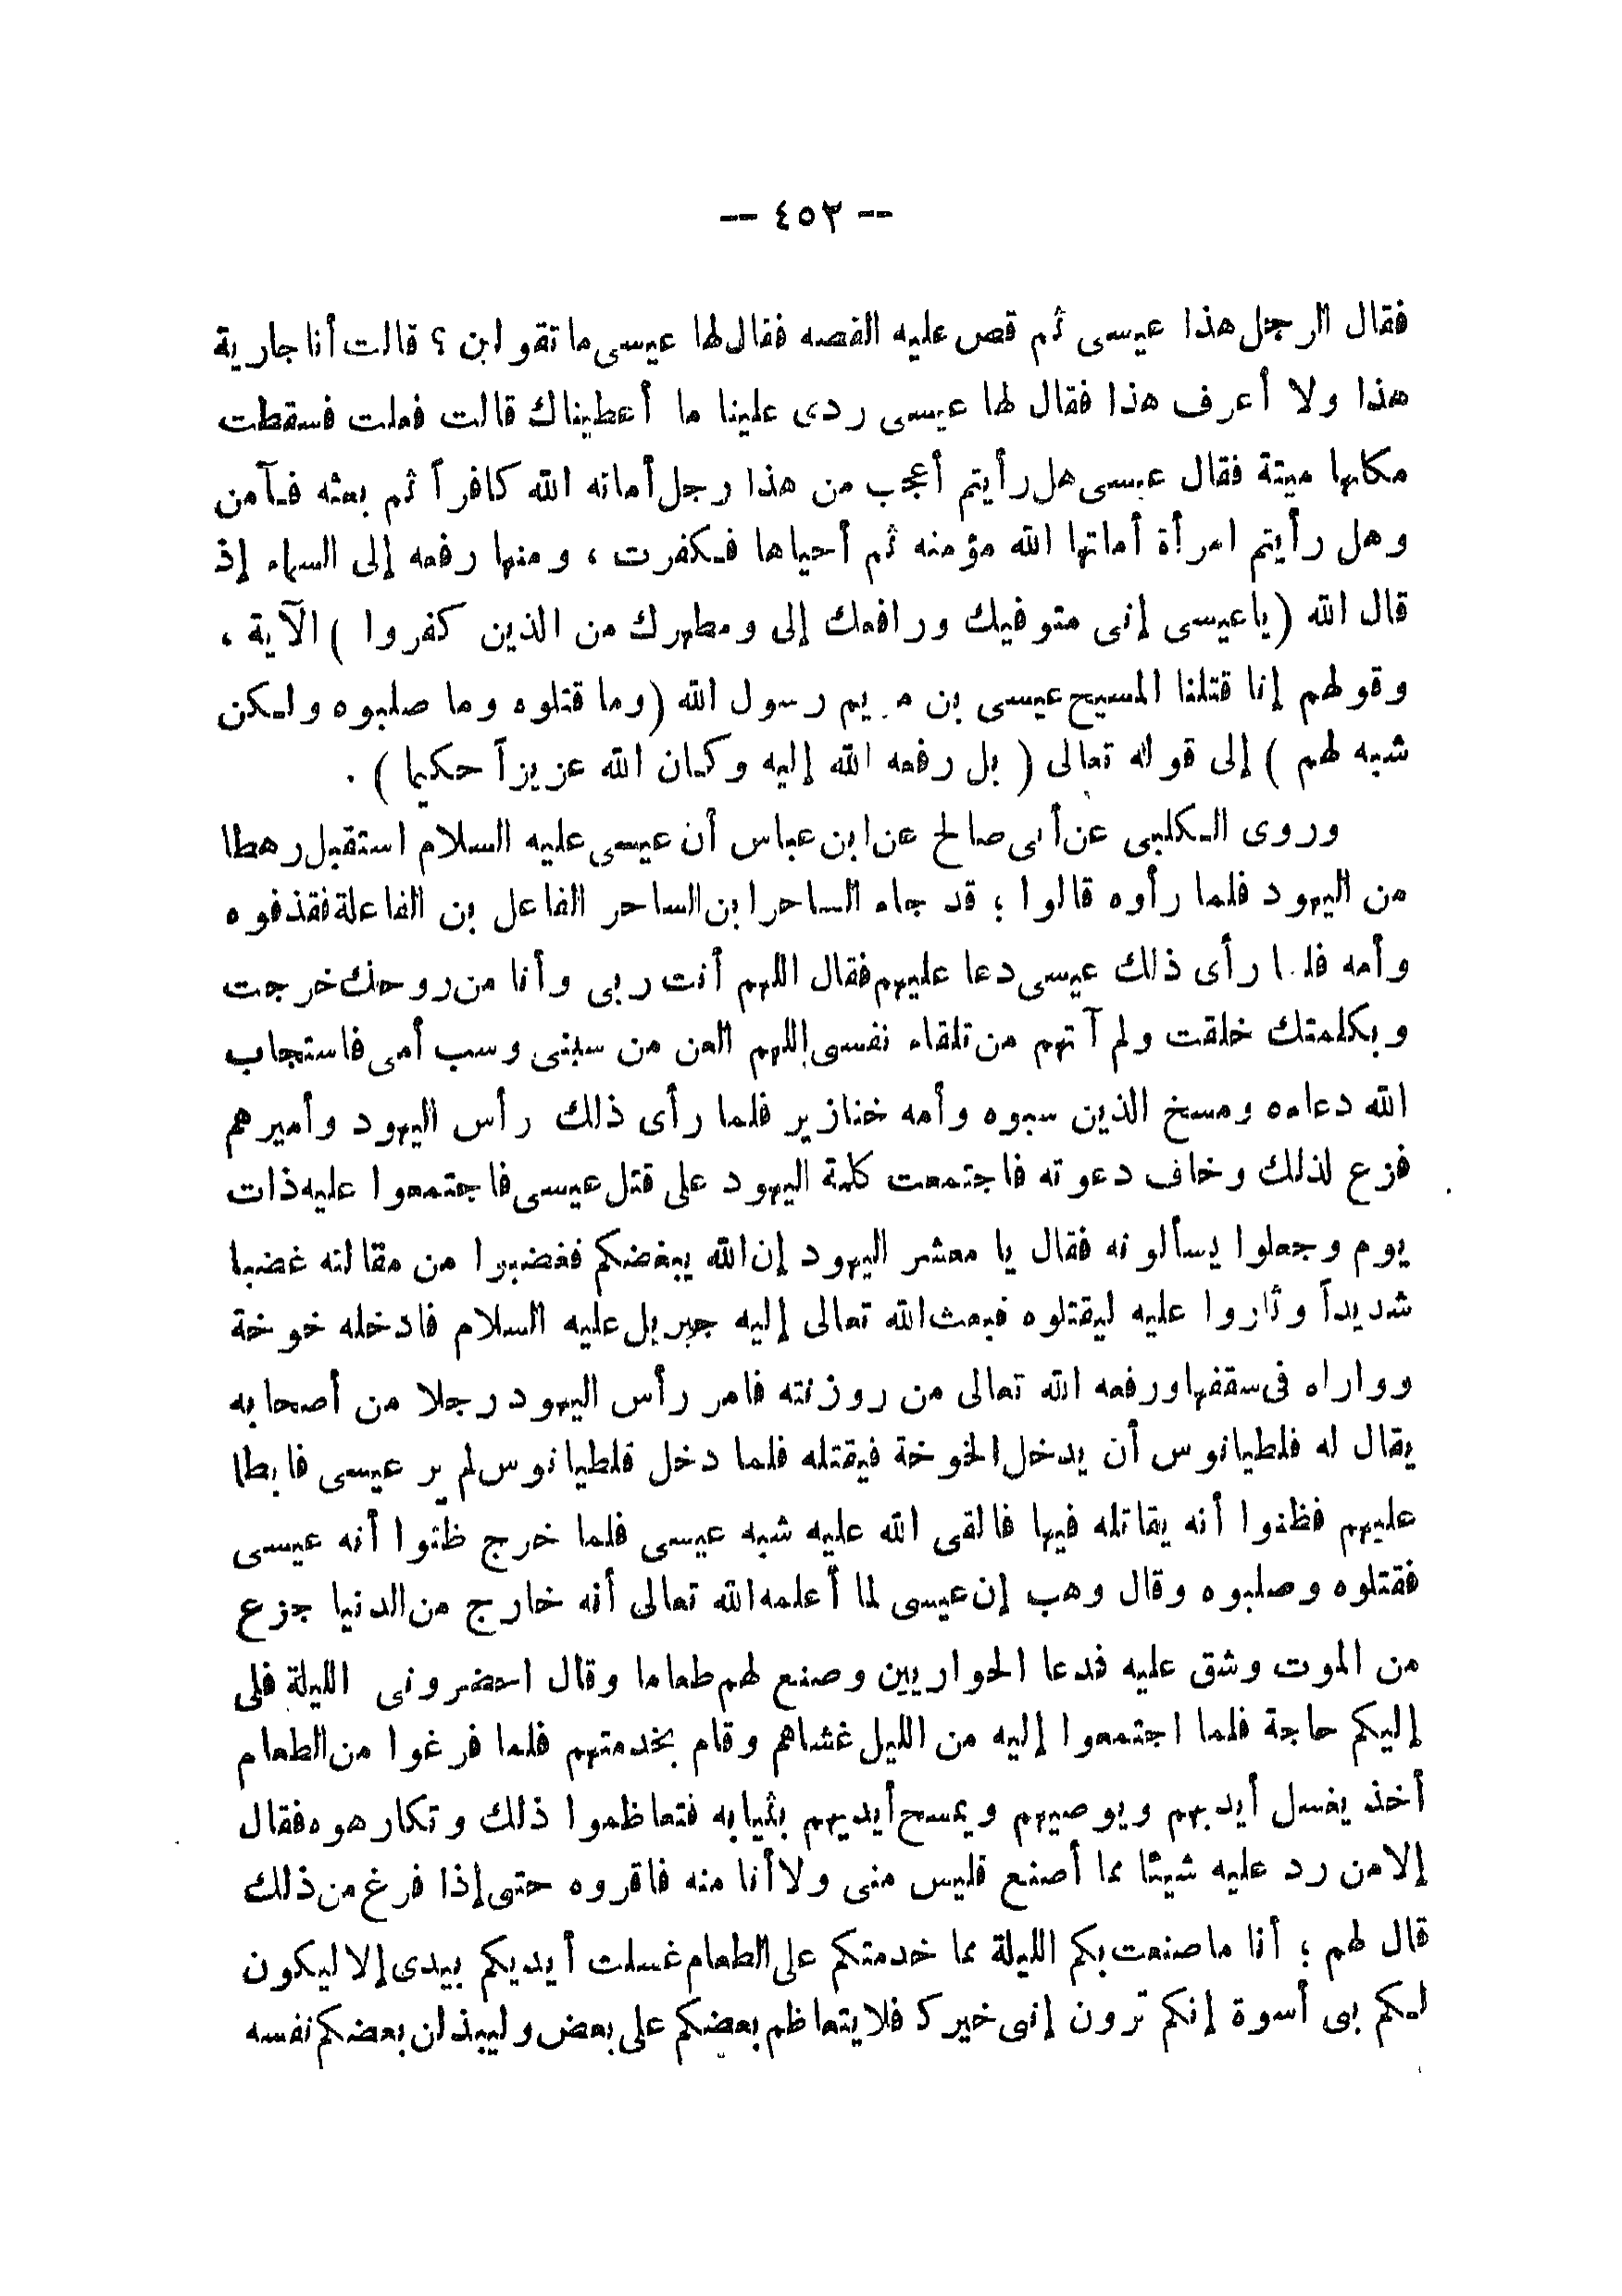 -- ٤٥٢ --
فقال الرجل هذا عيسى ثم قص عليه القصه فقال لها عيسى ما تقولين ؟ قالت أنا جارية
هذا ولا أعرف هذا فقال لها عيسى ردى علينا ما أعطيناك قالت فعلت فسقطت
مكانها ميتة فقال عيسى هل رأيتم أعجب من هذا رجل أماته الله كافراً ثم بعثه فآمن
وهل رأيتم امرأة أماتها الله مؤمنه ثم أحياها فكفرت ، ومنها رفعه إلى السماء إذ
قال الله (ياعيسى إنى متوفيك ورافعك إلى ومطهرك من الذين كفروا ) الآية ،
وقولهم إنا قتلنا المسيح عيسى بن مريم رسول الله (وما قتلوه وما صلبوه ولكن
شبه لهم ) إلى قوله تعالى ( بل رفعه الله إليه وكان الله عزيزاً حكيما ) .
وروى الكلبى عن أبى صالح عن ابن عباس أن عيسى عليه السلام استقبل رهطا
من اليهود فلما رأوه قالوا ؛ قد جاء الساحر ابن الساحر الفاعل بن الفاعلة فقذفوه
وأمه فلما رأى ذلك عيسى دعا عليهم فقال اللهم أنت ربى وأنا من روحك خرجت
وبكلمتك خلقت ولم آتهم من تلقاء نفسى اللهم العن من سبنى وسب أمى فاستجاب
الله دعاءه ومسخ الذين سبوه وأمه خنازير فلما رأى ذلك رأس اليهود وأميرهم
فزع لذلك وخاف دعوته فاجتمعت كلمة اليهود على قتل عيسى فاجتمعوا عليه ذات
يوم وجعلوا يسألونه فقال يا معشر اليهود إن الله يبغضكم فغضبوا من مقالته غضبا
شديداً وثاروا عليه ليقتلوه فبعث الله تعالى إليه جبريل عليه السلام فادخله خوخة
وواراه فى سقفها ورفعه الله تعالى من روزنته فامر رأس اليهود رجلا من أصحابه
يقال له فلطيانوس أن يدخل الخوخة فيقتله فلما دخل فلطيانوس لم ير عيسى فابطا
عليهم فظنوا أنه يقاتله فيها فالقى الله عليه شبه عيسى فلما خرج ظنوا أنه عيسى
فقتلوه وصلبوه وقال وهب إن عيسى لما أعلمه الله تعالى أنه خارج من الدنيا جزع
من الموت وشق عليه فدعا الحواريين وصنع لهم طعاما وقال احضرونى الليلة فلى
إليكم حاجة فلما اجتمعوا إليه من الليل غشاهم وقام بخدمتهم فلما فرغوا من الطعام
أخذ يغسل أيديهم ويوصيهم ويمسح أيديهم بثيابه فتعاظموا ذلك وتكارهوه فقال
إلا من رد عليه شيئا مما أصنع فليس منى ولا أنا منه فاقروه حتى إذا فرغ من ذلك
قال لهم ؛ أنا ما صنعت بكم الليلة مما خدمتكم على الطعام غسلت أيديكم بيدى إلا ليكون
لكم بى أسوة إنكم ترون إنى خيركم فلا يتعاظم بعضكم على بعض وليبذلن بعضكم نفسه